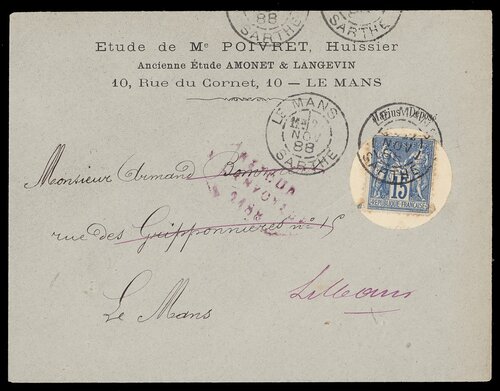 88
SARTHE
88
SARTHE
Etude de Me POIVRET, Huissier
Ancienne Étude AMONET & LANGEVIN
10, Rue du Cornet, 10 — LE MANS
LE MANS
NOV
88
SARTHE
Déposé
NOV
SARTHE
15
REPUBLIQUE FRANÇAISE
Monsieur Armand
rue des Gripponnières no 15
Le Mans